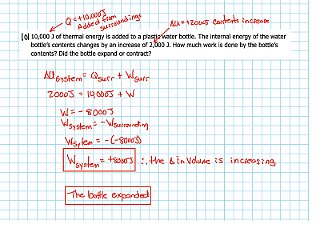 Q=+10,000J
Added from
surroundings
ΔU=+2000J contents increase
10,000 J of thermal energy is added to a plastic water bottle. The internal energy of the water
bottle's contents changes by an increase of 2,000 J. How much work is done by the bottle's
contents? Did the bottle expand or contract?
ΔU system = Q surr + W surr
2000J = 10,000J + W
W = -8000J
W system = -W surrounding
W system = -(-8000J)
W system = +8000J ∴ the Δ in Volume is increasing
The bottle expanded